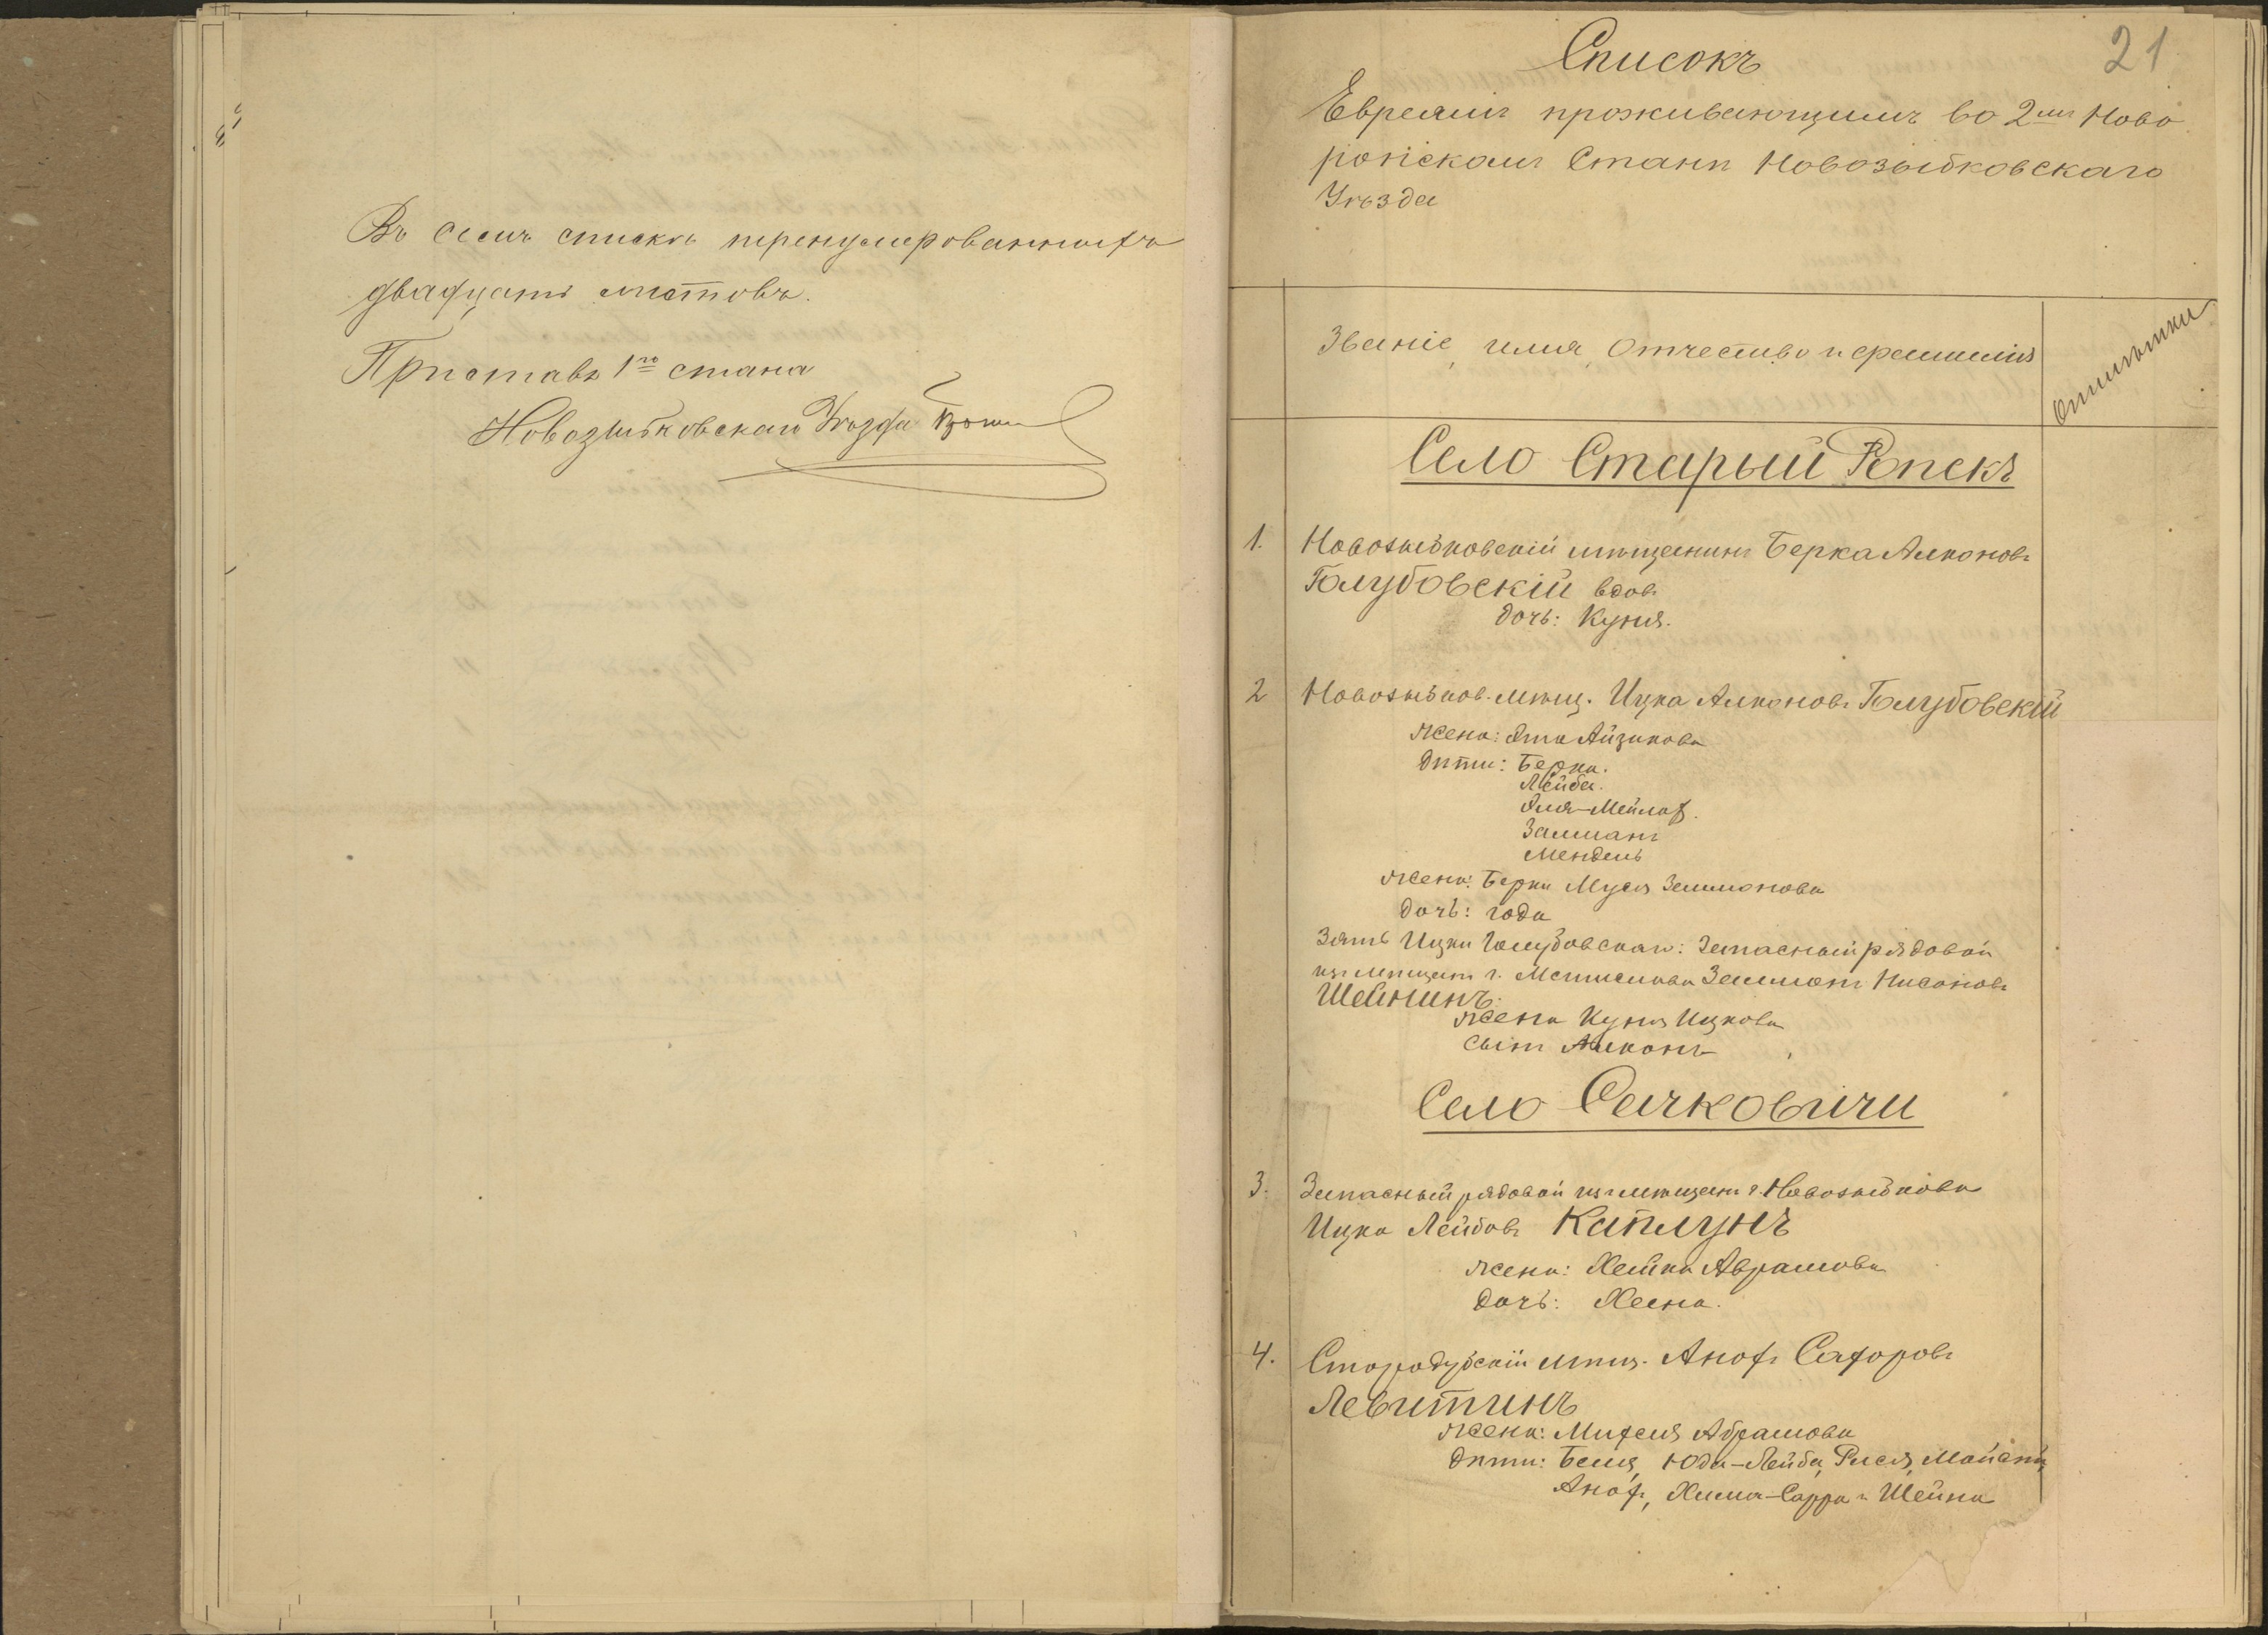 Въ семъ списке пренумерованныхъ
двадцать листовъ.
Приставъ 1го стана
Новозыбковскаго Уѣзда
21
Списокъ
Евреямъ проживающимъ во 2мъ Ново
ропскомъ Станѣ Новозыбковскаго
Уѣзда
Званіе, имя, Отчество и фамилія
Отмѣтки
Село Старый Ропскъ
1. Новозыбковскій мѣщанинъ Берка Алконовъ
Голубовскій вдов.
дочь: Куня.
2 Новозыбков. мѣщ. Ицка Алконовъ Голубовскій
жена: Эта Айзикова
дѣти: Берка.
Лейба.
Эля-Мейлах.
Залманъ
Мендель
жена: Берки Муся Залмонова
дочь: Года
Зять Ицки Голубовскаго: Запасный рядовой
изъ мѣщанъ г. Мстиславля Залманъ Нисоновъ
Шейнинъ.
жена Куня Ицкова
сынъ Алконъ
Село Сачковичи
3. Запасный рядовой изъ мѣщанъ г. Новозыбкова
Ицка Лейбовъ Каплунъ
жена: Хайка Аврамова
дочь: Хасна.
4. Стародубскій мѣщ. Анох. Сафоровъ
Левитинъ
жена: Михля Абрамова
дѣти: Беля, Юда-Лейба, Рися, Мойсей,
Анох, Хима-Сарра и Шейна